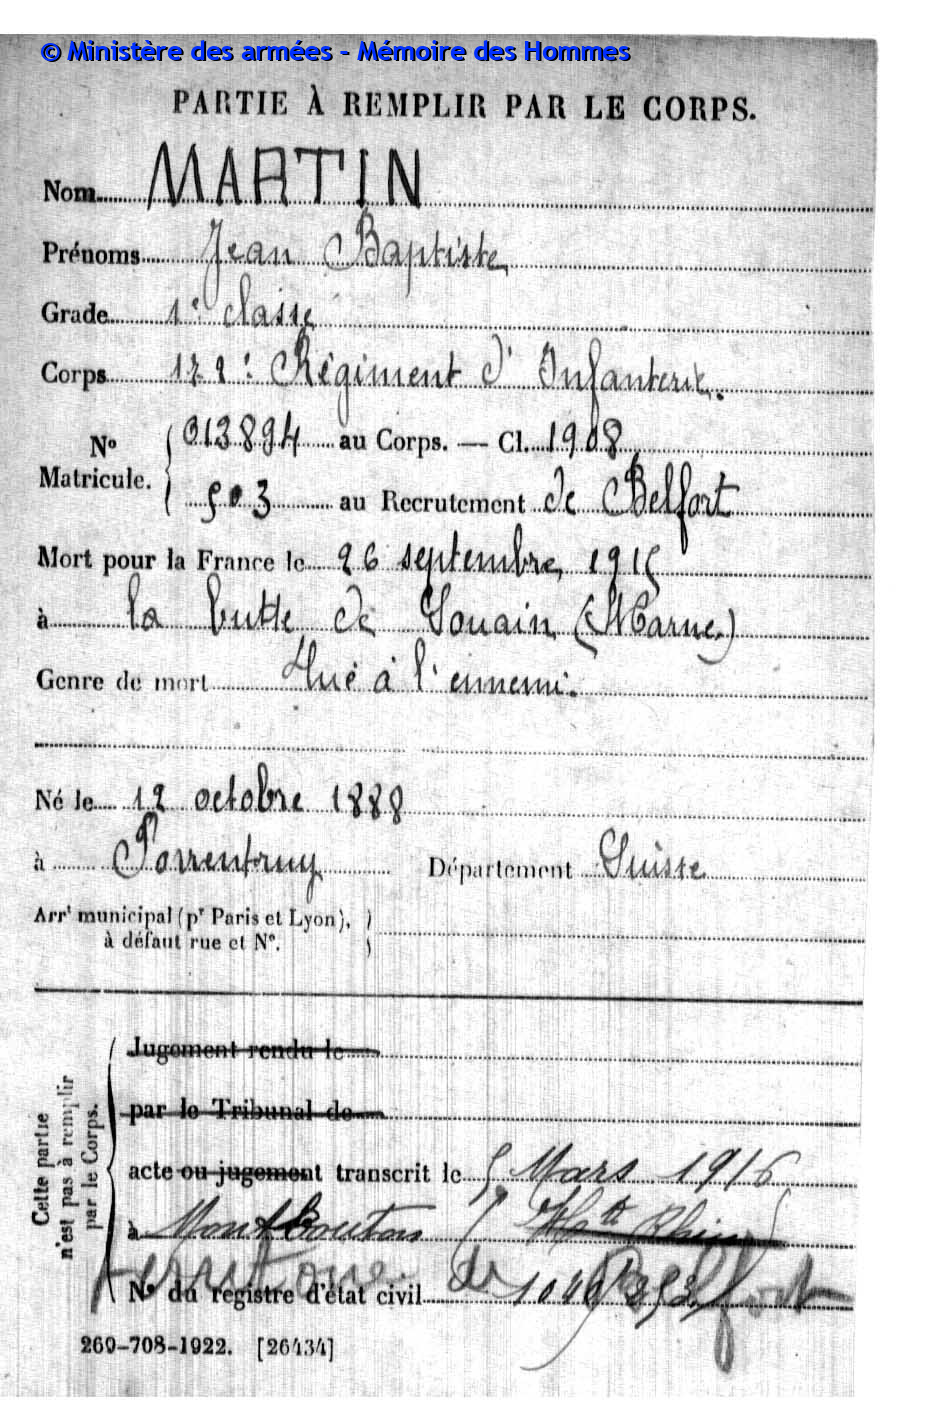 © Ministère des armées - Mémoire des Hommes
PARTIE À REMPLIR PAR LE CORPS.
Nom MARTIN
Prénoms Jean Baptiste
Grade 1e classe
Corps 172e Régiment d'Infanterie.
No Matricule. 013894 au Corps. — Cl. 1908
503 au Recrutement de Belfort
Mort pour la France le 26 septembre 1915
à la butte de Souain (Marne)
Genre de mort Tué à l'ennemi.
Né le 12 octobre 1888
à Porrentruy Département Suisse
Arrt municipal (pr Paris et Lyon),
à défaut rue et No.
Cette partie
n'est pas à remplir
par le Corps.
Jugement rendu le
par le Tribunal de
acte ou jugement transcrit le 5 Mars 1916
à Montbouton (Ht Rhin)
Territoire de Belfort
No du registre d'état civil
269-708-1922. [26434]